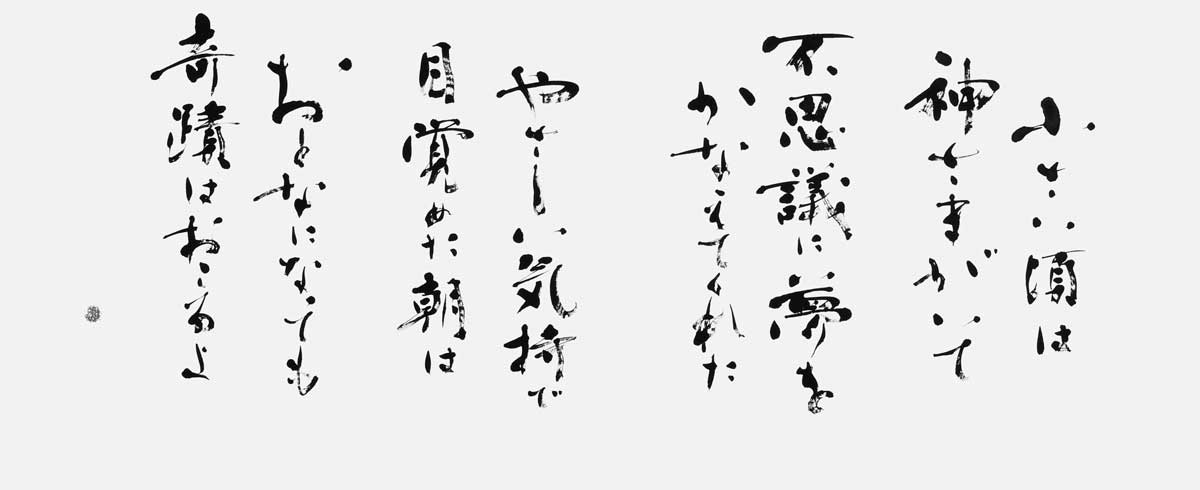 小さい頃は
神さまがいて
不思議に夢を
かなえてくれた
やさしい気持で
目覚めた朝は
おとなになっても
奇蹟はおこるよ